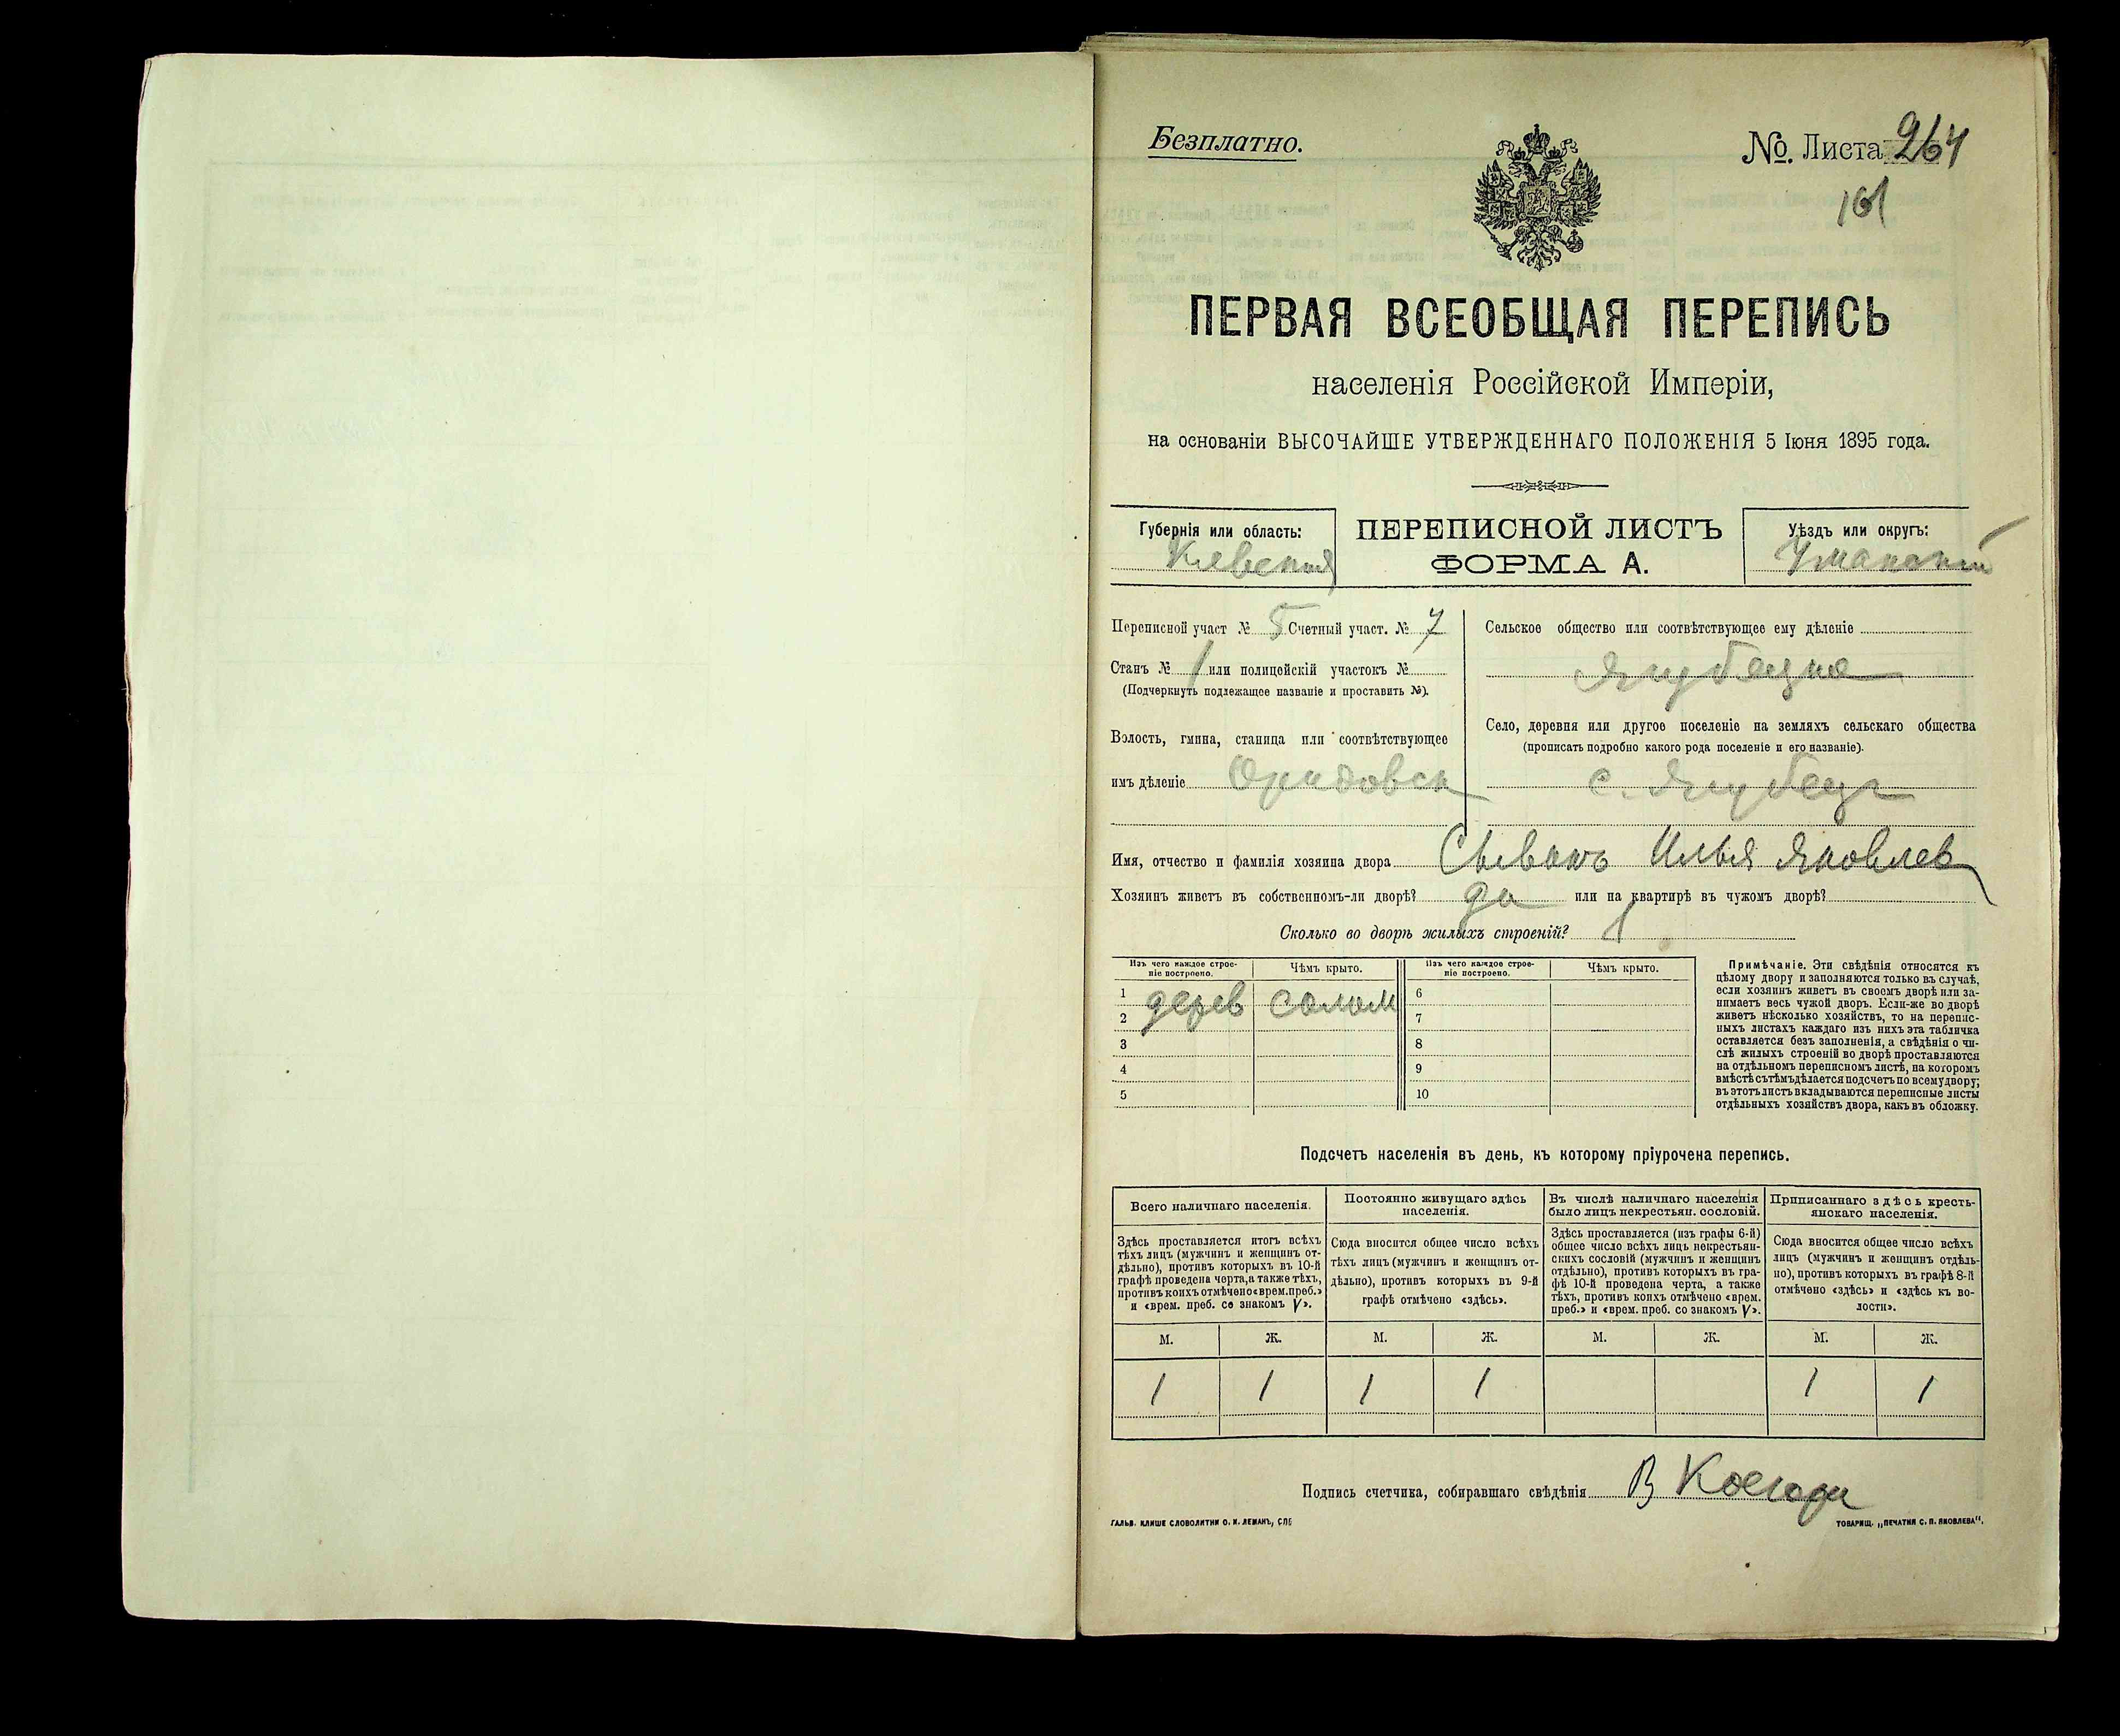 Безплатно.
№. Листа 264
161
ПЕРВАЯ ВСЕОБЩАЯ ПЕРЕПИСЬ
населенія Россійской Имперіи,
на основаніи ВЫСОЧАЙШЕ УТВЕРЖДЕННАГО ПОЛОЖЕНІЯ 5 Іюня 1895 года.
Губернія или область:
Киевская
ПЕРЕПИСНОЙ ЛИСТЪ
ФОРМА А.
Уѣздъ или округъ:
Уманский
Переписной участ № 5 Счетный участ. № 7
Станъ № 1 или полицейскій участокъ №
(Подчеркнуть подлежащее названіе и проставить №).
Волость, гмина, станица или соотвѣтствующее
имъ дѣленіе
Сельское общество или соотвѣтствующее ему дѣленіе
Село, деревня или другое поселеніе на земляхъ сельскаго общества
(прописать подробно какого рода поселеніе и его названіе).
с. Ягубец
Имя, отчество и фамилія хозяина двора Илья Яковлев
Хозяинъ живетъ въ собственномъ-ли дворѣ? да или на квартирѣ въ чужомъ дворѣ?
Сколько во дворѣ жилыхъ строеній? 1
Изъ чего каждое строе-
ніе построено.
Чѣмъ крыто.
Изъ чего каждое строе-
ніе построено.
Чѣмъ крыто.
1 дерев солом 6
2 7
3 8
4 9
5 10
Примѣчаніе. Эти свѣдѣнія относятся къ
цѣлому двору и заполняются только въ случаѣ,
если хозяинъ живетъ въ своемъ дворѣ или за-
нимаетъ весь чужой дворъ. Если-же во дворѣ
живетъ нѣсколько хозяйствъ, то на перепис-
ныхъ листахъ каждаго изъ нихъ эта табличка
оставляется безъ заполненія, а свѣдѣнія о чи-
слѣ жилыхъ строеній во дворѣ проставляются
на отдѣльномъ переписномъ листѣ, на которомъ
вмѣстѣ съ тѣмъ дѣлается подсчетъ по всему двору;
въ этотъ листъ вкладываются переписные листы
отдѣльныхъ хозяйствъ двора, какъ въ обложку.
Подсчетъ населенія въ день, къ которому пріурочена перепись.
Всего наличнаго населенія.
Здѣсь проставляется итогъ всѣхъ
тѣхъ лицъ (мужчинъ и женщинъ от-
дѣльно), противъ которыхъ въ 10-й
графѣ проведена черта, а также тѣхъ,
противъ коихъ отмѣчено «врем. преб.»
и «врем. преб. со знакомъ V».
Постоянно живущаго здѣсь
населенія.
Сюда вносится общее число всѣхъ
тѣхъ лицъ (мужчинъ и женщинъ от-
дѣльно), противъ которыхъ въ 9-й
графѣ отмѣчено «здѣсь».
Въ числѣ наличнаго населенія
было лицъ некрестьян. сословій.
Здѣсь проставляется (изъ графы 6-й)
общее число всѣхъ лицъ некрестьян-
скихъ сословій (мужчинъ и женщинъ
отдѣльно), противъ которыхъ въ гра-
фѣ 10-й проведена черта, а также
тѣхъ, противъ коихъ отмѣчено «врем.
преб.» и «врем. преб. со знакомъ V».
Приписаннаго здѣсь кресть-
янскаго населенія.
Сюда вносится общее число всѣхъ
лицъ (мужчинъ и женщинъ отдѣль-
но), противъ которыхъ въ графѣ 8-й
отмѣчено «здѣсь» и «здѣсь къ во-
лости».
М. Ж. М. Ж. М. Ж. М. Ж.
1 1 1 1 1 1
Подпись счетчика, собиравшаго свѣдѣнія В
ГАЛЬВ. КЛИШЕ СЛОВОЛИТНИ О. И. ЛЕМАНЪ, СПБ
ТОВАРИЩ. „ПЕЧАТНЯ С. П. ЯКОВЛЕВА“.